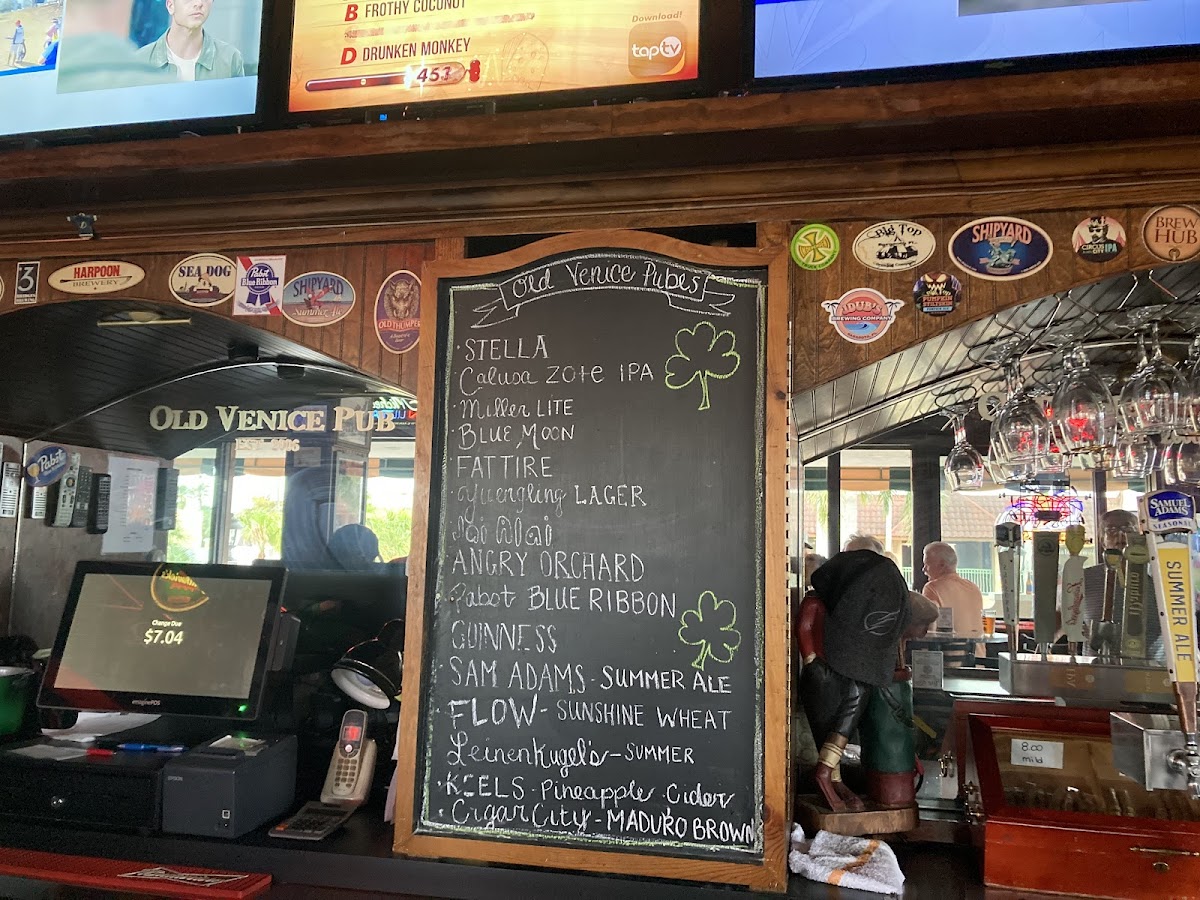 B FROTHY COCONUT
D DRUNKEN MONKEY
453
Download!
taptv
3
HARPOON
BREWERY
SEA DOG
Pabst
Blue Ribbon
SHIPYARD
Summer Ale
OLD THUMPER
Big Top
SHIPYARD
CIRCUS CITY IPA
BREW
HUB
PUMPKIN
JDUB'S
BREWING COMPANY
OLD VENICE PUB
Pabst
Change Due
$7.04
EPSON
Old Venice Pubes
· STELLA
Calusa Zote IPA
· Miller LITE
· BLUE MOON
FAT TIRE
· Yuengling LAGER
Jai Alai
ANGRY ORCHARD
Pabst BLUE RIBBON
GUINNESS
· SAM ADAMS - SUMMER ALE
· FLOW - SUNSHINE WHEAT
Leinenkugel's - SUMMER
· KEELS - Pineapple Cider
· Cigar City - MADURO BROWN
SAMUEL
ADAMS
SEASONAL
SUMMER ALE
8.00
mild